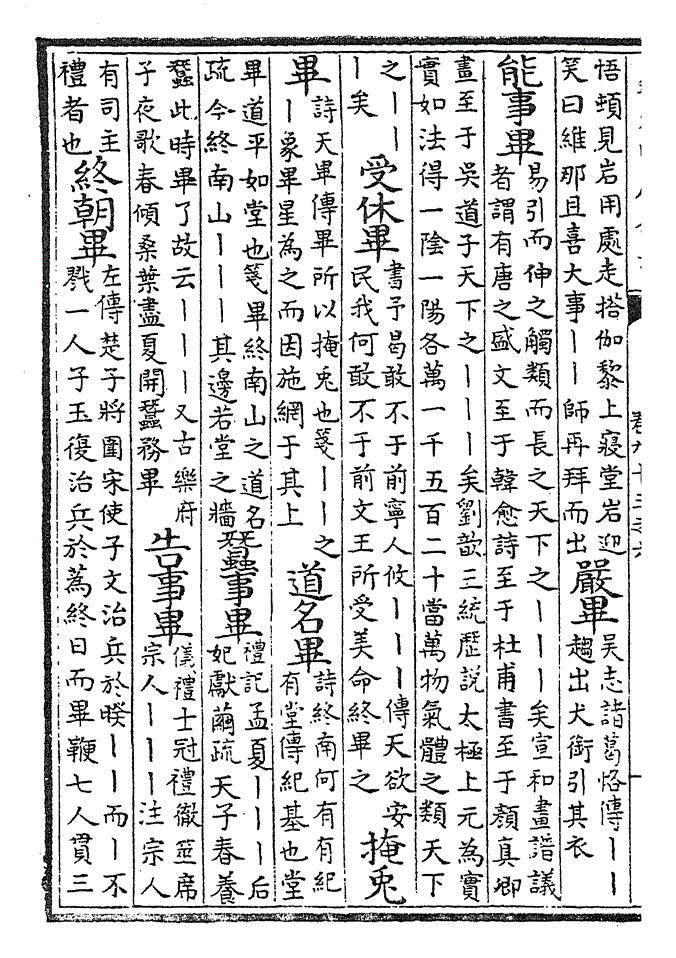 悟頓見岩用處走搭伽黎上寢堂岩迎
笑曰維那且喜大事丨丨師再拜而出
嚴畢
吳志諸葛恪傳丨丨
趨出犬銜引其衣
能事畢
易引而伸之觸類而長之天下之丨丨丨矣宣和畫譜議
者謂有唐之盛文至于韓愈詩至于杜甫書至于顏真卿
畫至于吳道子天下之丨丨丨矣劉歆三統歷說太極上元為實
實如法得一陰一陽各萬一千五百二十當萬物氣體之類天下
之丨丨
丨矣
受休畢
書予曷敢不于前寧人攸丨丨丨傳天欲安
民我何敢不于前文王所受美命終畢之
掩兔
畢
詩天畢傳畢所以掩兎也箋丨丨之
丨象畢星為之而因施網于其上
道名畢
詩終南何有有紀
有堂傳紀基也堂
畢道平如堂也箋畢終南山之道名
疏今終南山丨丨丨其邊若堂之牆
蠶事畢
禮記孟夏丨丨丨后
妃獻繭疏天子春養
蠶此時畢了故云丨丨丨又古樂府
子夜歌春傾桑葉盡夏開蠶務畢
告事畢
儀禮士冠禮徹筮席
宗人丨丨丨注宗人
有司主
禮者也
終朝畢
左傳楚子將圍宋使子文治兵於睽丨丨而丨不
戮一人子玉復治兵於蒍終日而畢鞭七人貫三